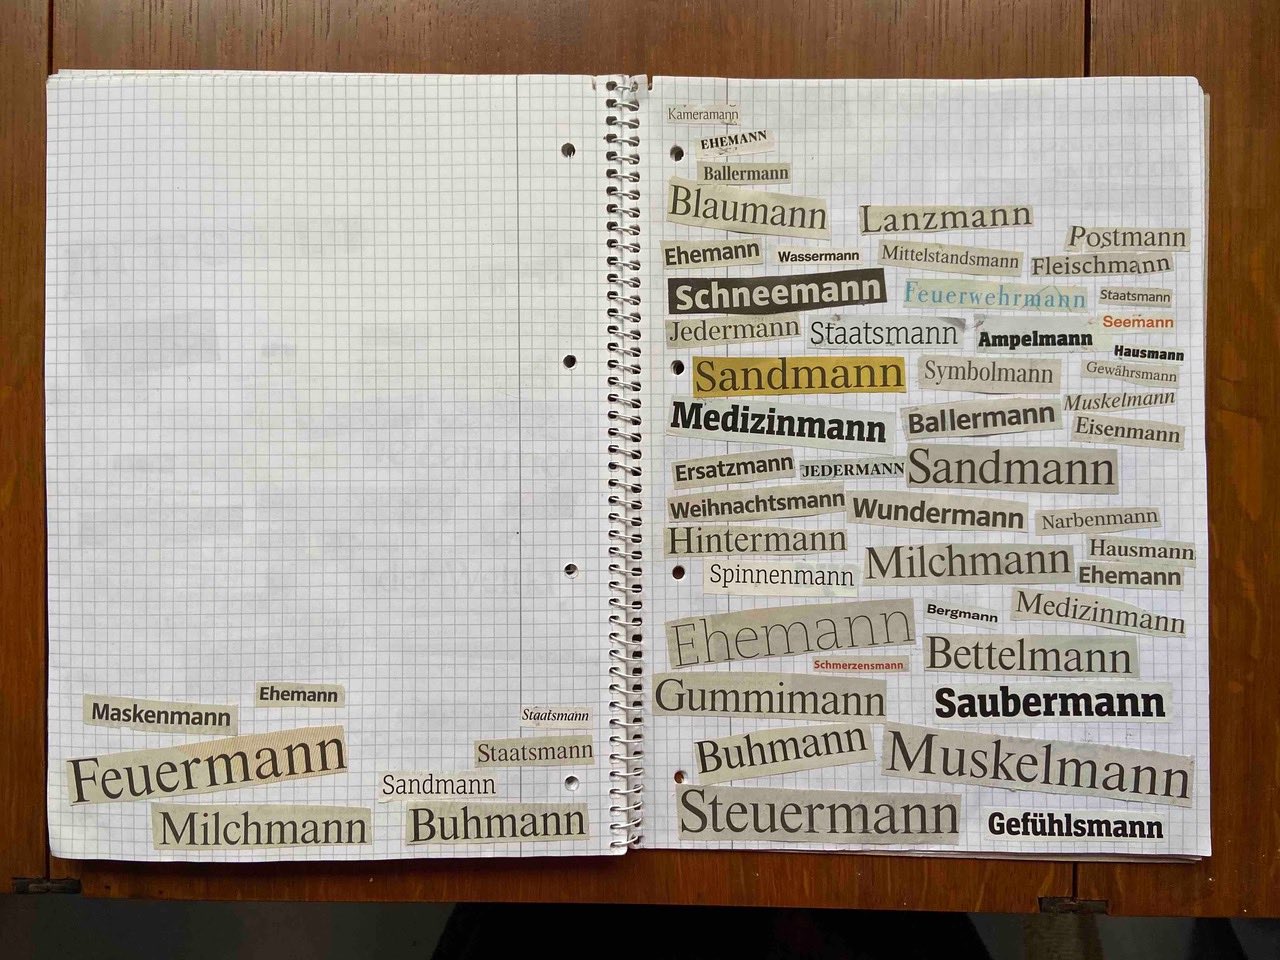 Ehemann
Maskenmann
Staatsmann
Feuermann
Staatsmann
Sandmann
Milchmann
Buhmann
Kameramann
EHEMANN
Ballermann
Blaumann
Lanzmann
Postmann
Ehemann
Wassermann
Mittelstandsmann
Fleischmann
Schneemann
Feuerwehrmann
Staatsmann
Jedermann
Staatsmann
Ampelmann
Seemann
Hausmann
Sandmann
Symbolmann
Gewährsmann
Medizinmann
Ballermann
Muskelmann
Eisenmann
Ersatzmann
JEDERMANN
Sandmann
Weihnachtsmann
Wundermann
Narbenmann
Hintermann
Milchmann
Hausmann
Spinnenmann
Ehemann
Ehemann
Bergmann
Medizinmann
Schmerzensmann
Bettelmann
Gummimann
Saubermann
Buhmann
Muskelmann
Steuermann
Gefühlsmann